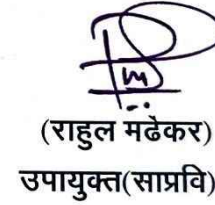 (राहुल मढेकर)
उपायुक्त(साप्रवि)